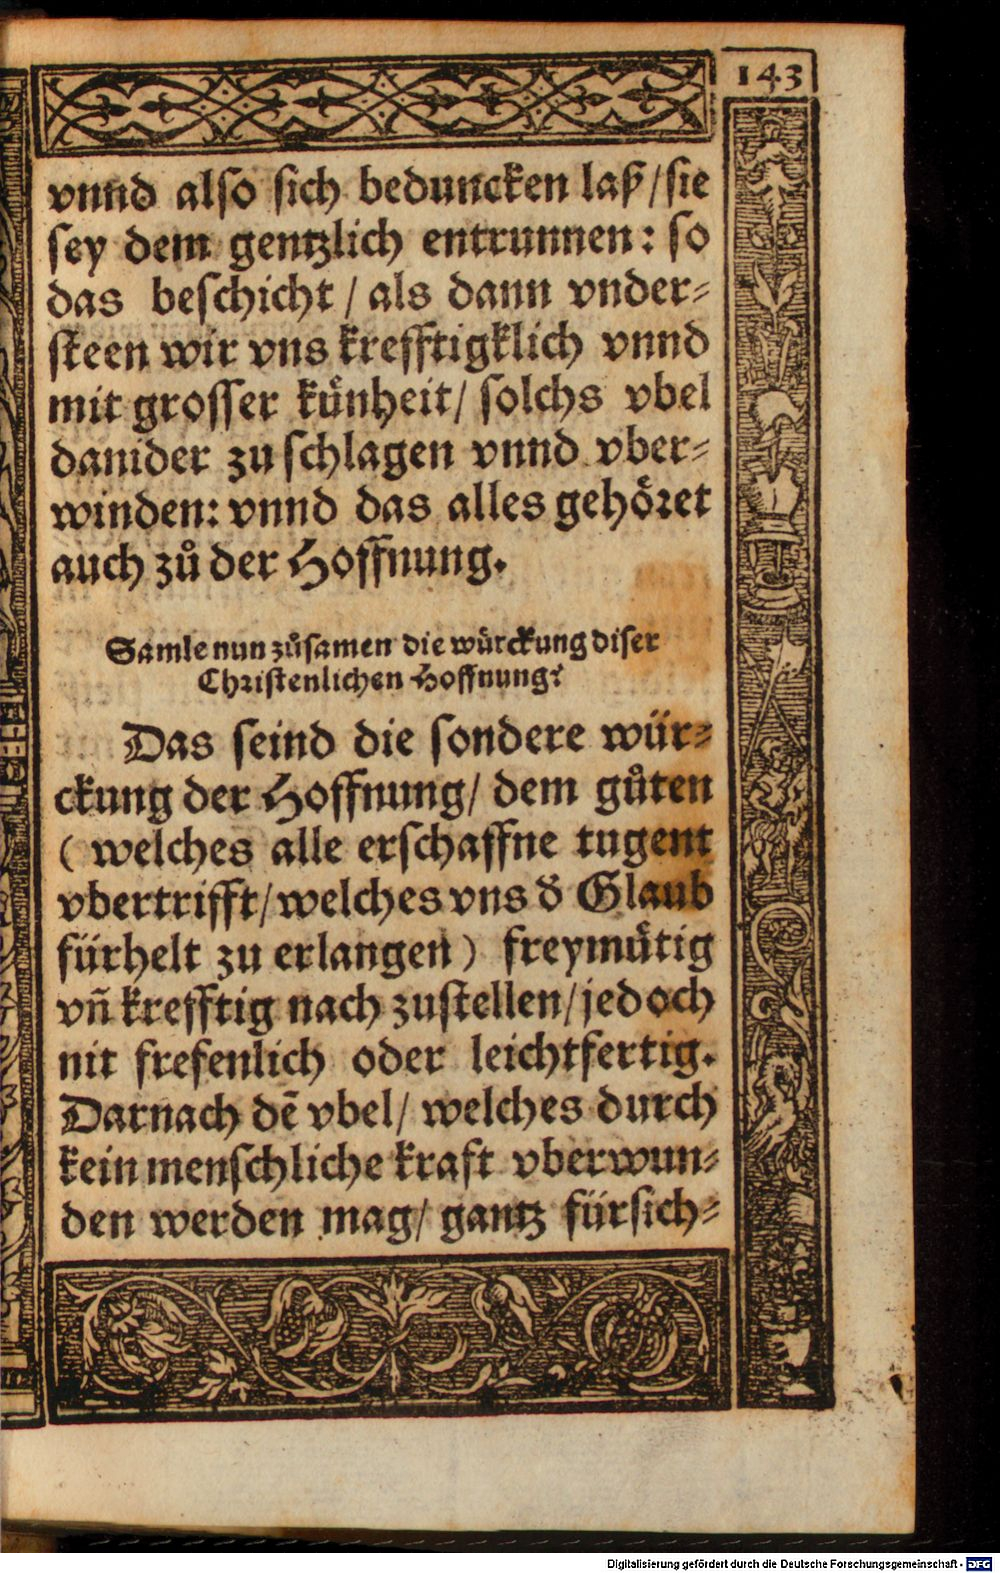 143
vnnd also sich beduncken laß / sie
sey dem gentzlich entrunnen: so
das beschicht / als dann vnder⸗
steen wir vns krefftigklich vnnd
mit grosser kuͤnheit / solchs vbel
danider zu schlagen vnnd vber⸗
winden: vnnd das alles gehoͤret
auch zuͦ der Hoffnung.
Samle nun zuͦsamen die würckung diser
Christenlichen Hoffnung?
Das seind die sondere wür⸗
ckung der Hoffnung / dem guͦten
( welches alle erschaffne tugent
vbertrifft / welches vns d̕ Glaub
fürhelt zu erlangen ) freymuͤtig
vñ krefftig nach zustellen / jedoch
nit frefenlich oder leichtfertig.
Darnach dē vbel / welches durch
kein menschliche kraft vberwun⸗
den werden mag / gantz fürsich⸗
Digitalisierung gefördert durch die Deutsche Forschungsgemeinschaft - DFG